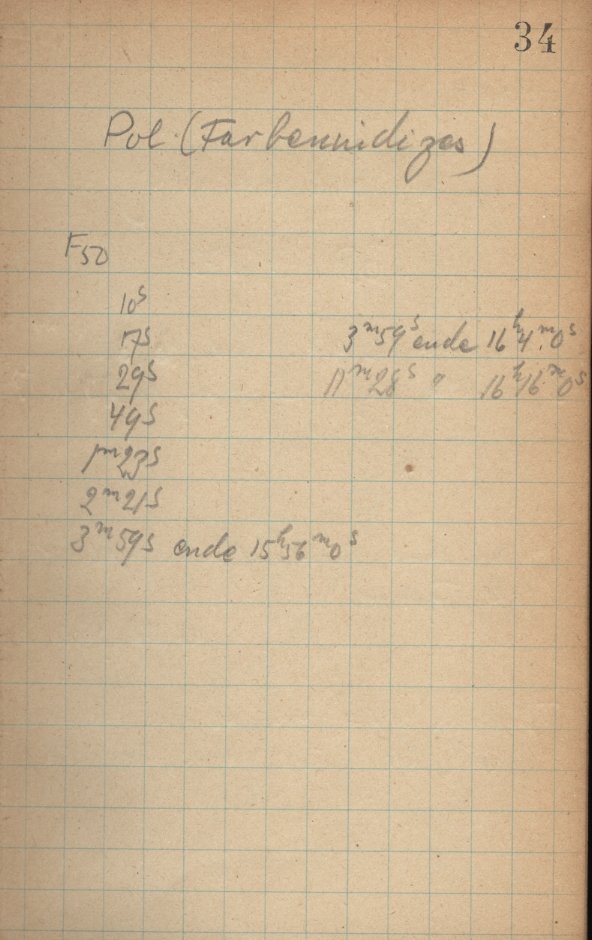 34
Pol. (Farbenindizes)
F50
10s
17s
29s
49s
1m23s
2m21s
3m59s ende 15h56m0s
3m59s ende 16h4m0s
11m28s " 16h16m0s